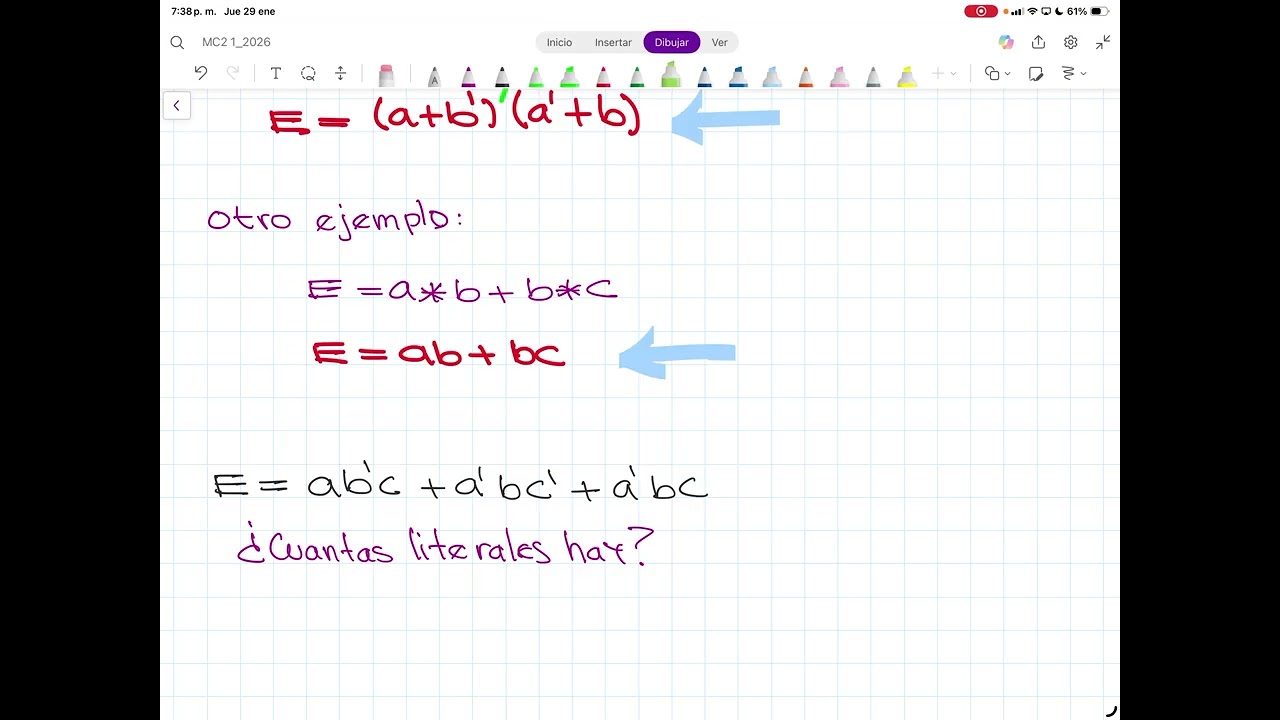 7:38 p. m. Jue 29 ene
61%
MC2 1_2026
Inicio Insertar Dibujar Ver
T A
E = (a+b')' (a'+b)
otro ejemplo:
E = a*b + b*c
E = ab + bc
E = ab'c + a'bc' + a'bc
¿Cuantas literales hay?